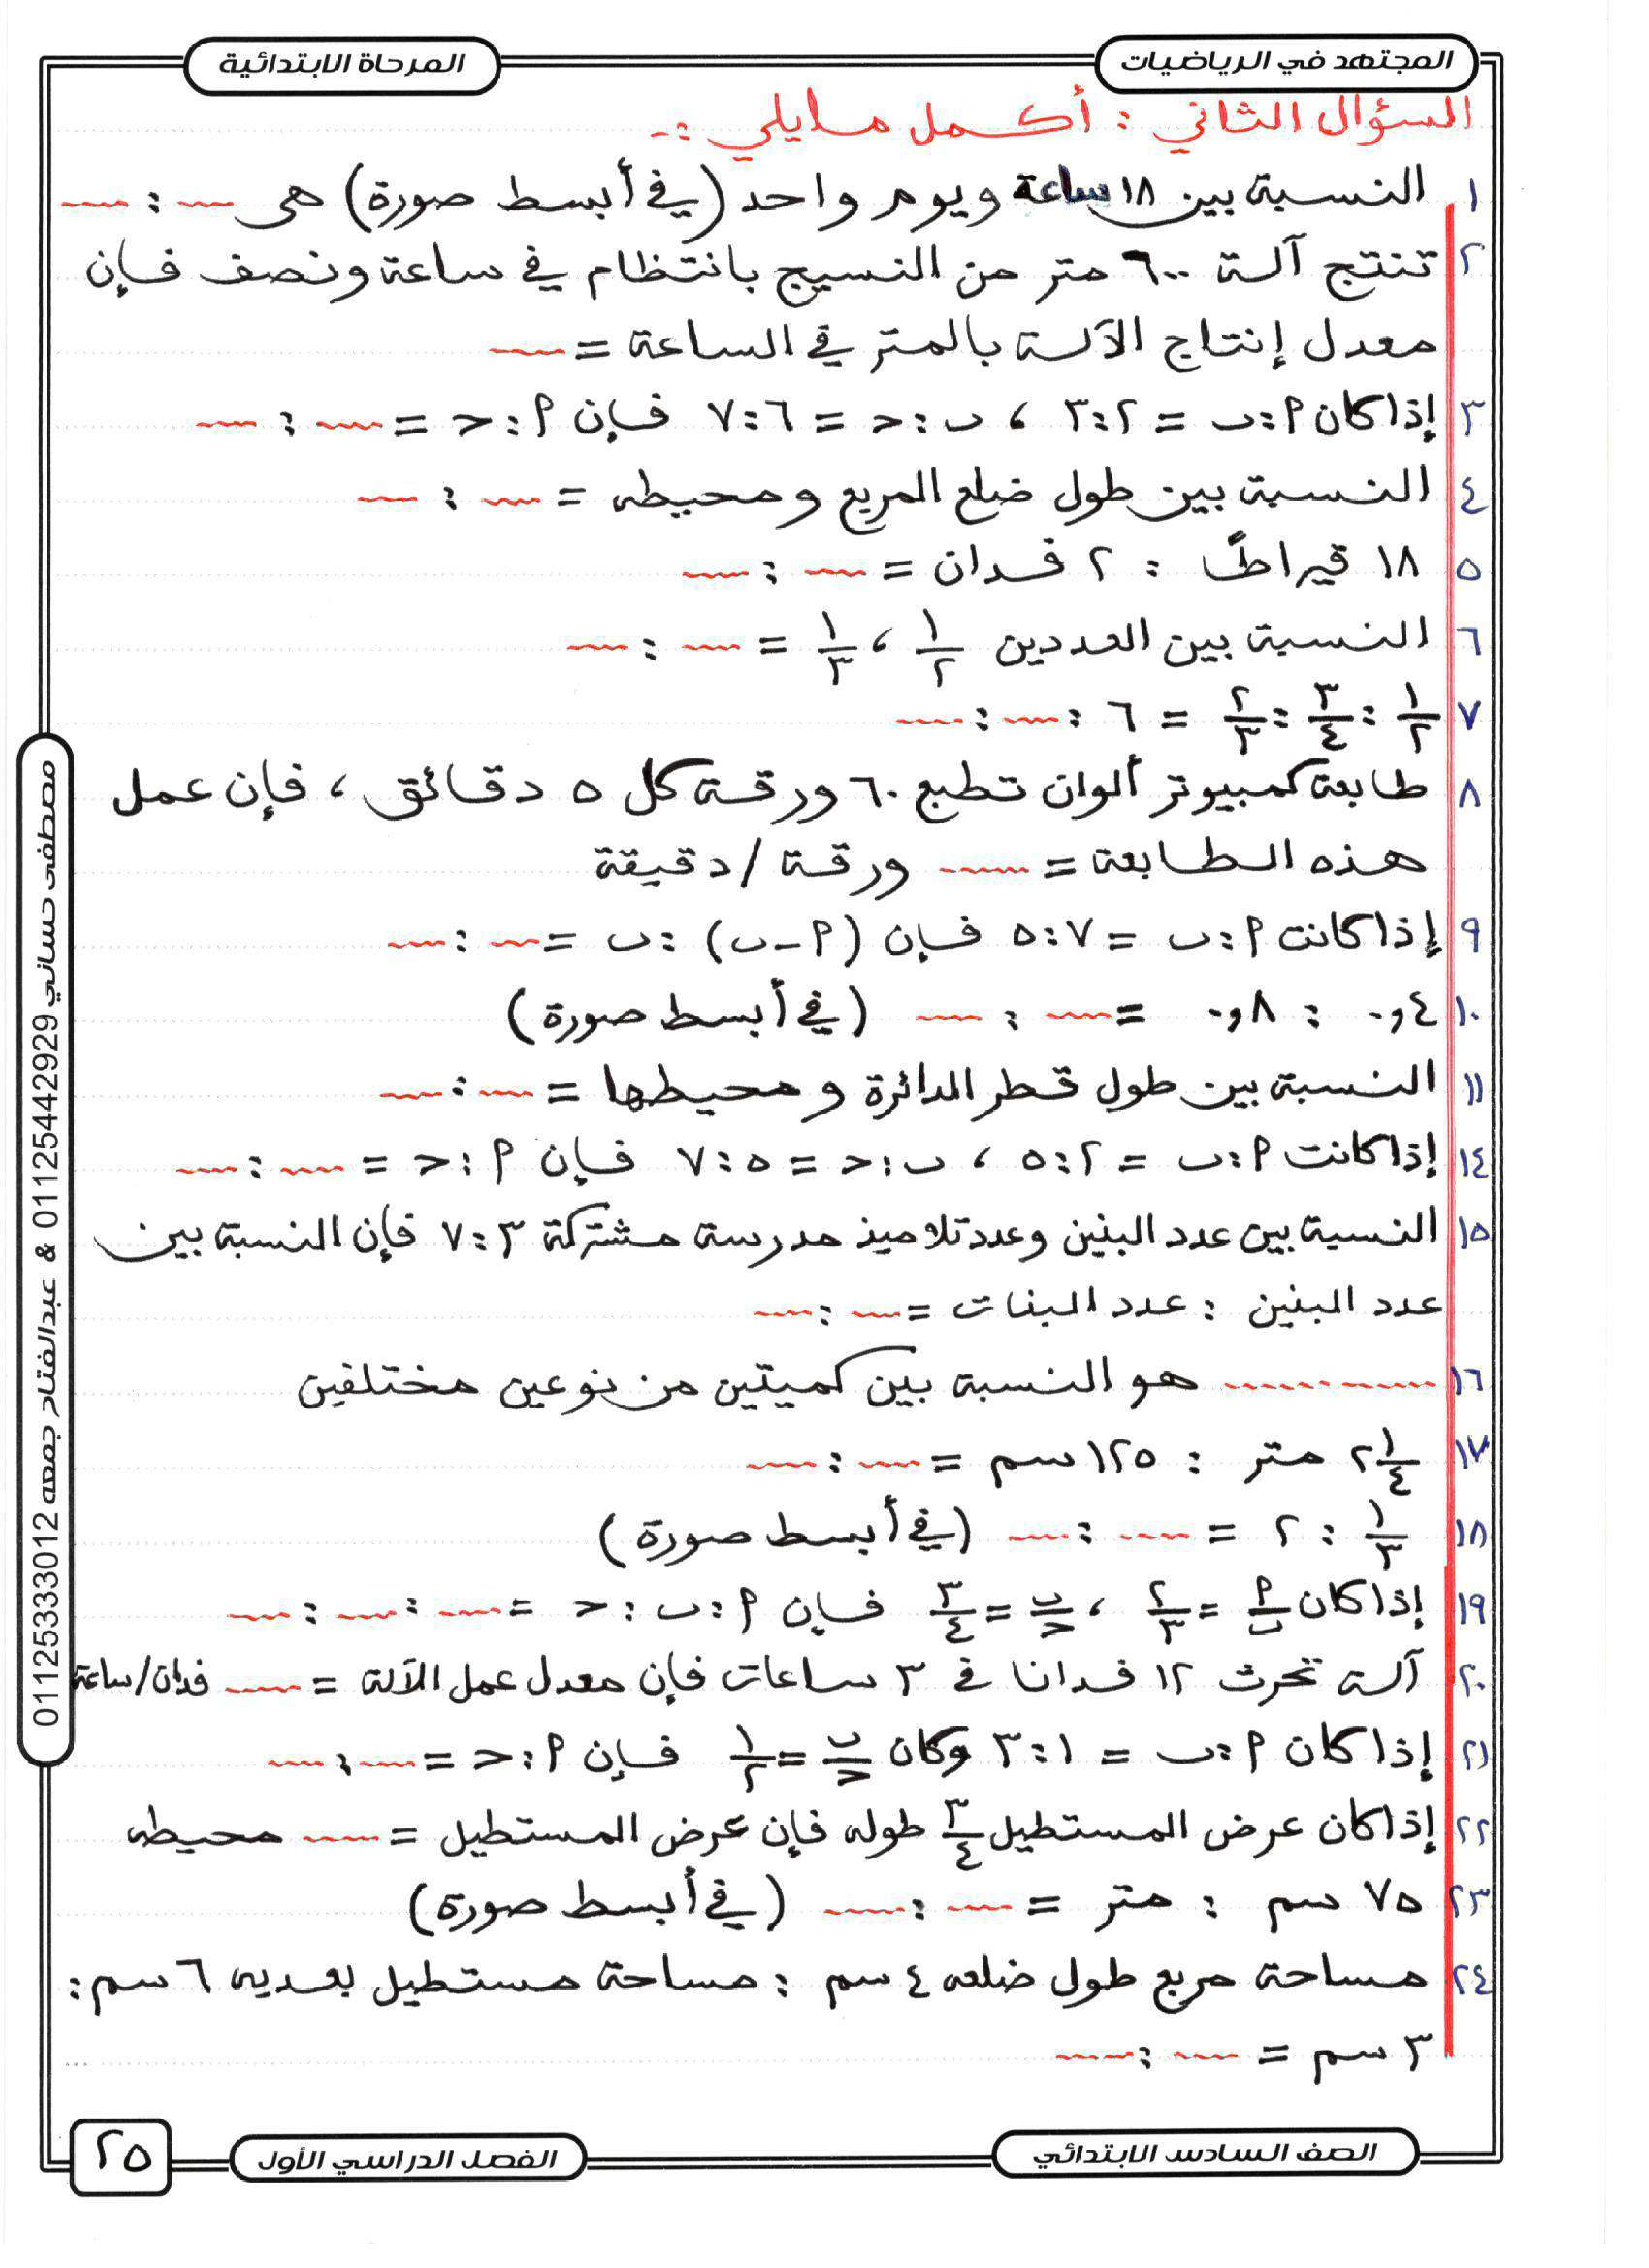 المجتهد في الرياضيات
المرحاة الابتدائية
السؤال الثاني : أكمل مايلي :-
١ النسبة بين ١٨ ساعة ويوم واحد (في أبسط صورة) هى ــ : ــ
٢ تنتج آلة ٦٠٠ متر من النسيج بانتظام في ساعة ونصف فإن
معدل إنتاج الآلة بالمتر في الساعة = ــ
٣ إذا كان أ:ب = ٢:٣ ، ب:ح = ٦:٧ فإن أ:ح = ــ : ــ
٤ النسبة بين طول ضلع المربع ومحيطه = ــ : ــ
٥ ١٨ قيراطاً : ٢ فدان = ــ : ــ
٦ النسبة بين العددين ١/٢ ، ١/٣ = ــ : ــ
٧ ١/٢ : ٣/٤ : ٢/٣ = ٦ : ــ : ــ
٨ طابعة كمبيوتر ألوان تطبع ٦٠ ورقة كل ٥ دقائق ، فإن عمل
هذه الطابعة = ــ ورقة / دقيقة
٩ إذا كانت أ:ب = ٧:٥ فإن (أ-ب) : ب = ــ : ــ
١٠ ٠,٤ : ٠,٨ = ــ : ــ (في أبسط صورة)
١١ النسبة بين طول قطر الدائرة ومحيطها = ــ : ــ
١٤ إذا كانت أ:ب = ٢:٥ ، ب:ح = ٥:٧ فإن أ:ح = ــ : ــ
١٥ النسبة بين عدد البنين وعدد تلاميذ مدرسة مشتركة ٣:٧ فإن النسبة بين
عدد البنين : عدد البنات = ــ : ــ
١٦ ............ هو النسبة بين كميتين من نوعين مختلفين
١٧ ٢ ١/٤ متر : ١٢٥ سم = ــ : ــ
١٨ ١/٣ : ٢ = ــ : ــ (في أبسط صورة)
١٩ إذا كان أ/ب = ٢/٣ ، ب/ح = ٣/٤ فإن أ:ب:ح = ــ : ــ : ــ
٢٠ آلة تحرث ١٢ فدانا في ٣ ساعات فإن معدل عمل الآلة = ــ فدان/ساعة
٢١ إذا كان أ:ب = ١:٣ وكان ب/ح = ١/٢ فإن أ:ح = ــ : ــ
٢٢ إذا كان عرض المستطيل ٣/٤ طوله فإن عرض المستطيل = ــ محيطه
٢٣ ٧٥ سم : متر = ــ : ــ (في أبسط صورة)
٢٤ مساحة مربع طول ضلعه ٤ سم : مساحة مستطيل بعديه ٦ سم :
٣ سم = ــ : ــ
مصطفى حساني 01125442929 & عبدالفتاح جمعه 01125333012
الصف السادس الابتدائي
الفصل الدراسي الأول
٢٥